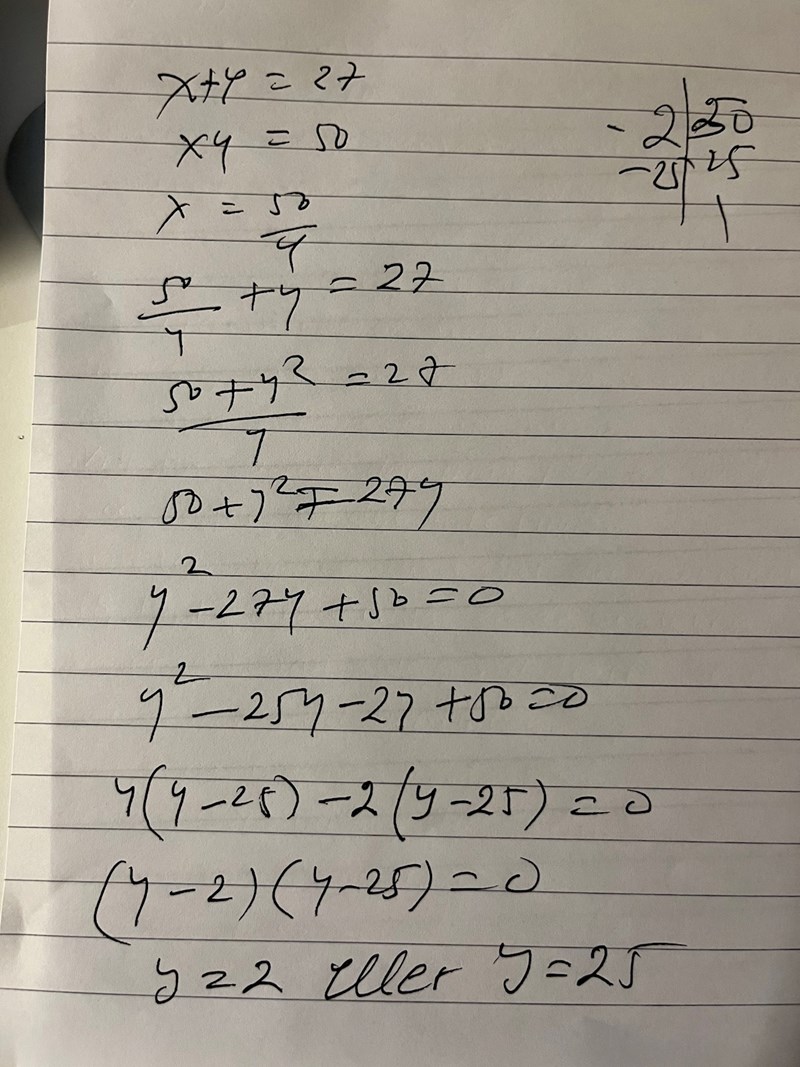 x+y = 27
xy = 50
x = 50/y
50/y + y = 27
(50 + y²)/y = 27
50 + y² = 27y
y² - 27y + 50 = 0
y² - 25y - 2y + 50 = 0
y(y - 25) - 2(y - 25) = 0
(y - 2)(y - 25) = 0
y = 2 eller y = 25
- 2 | 50
- 25 | 25
1